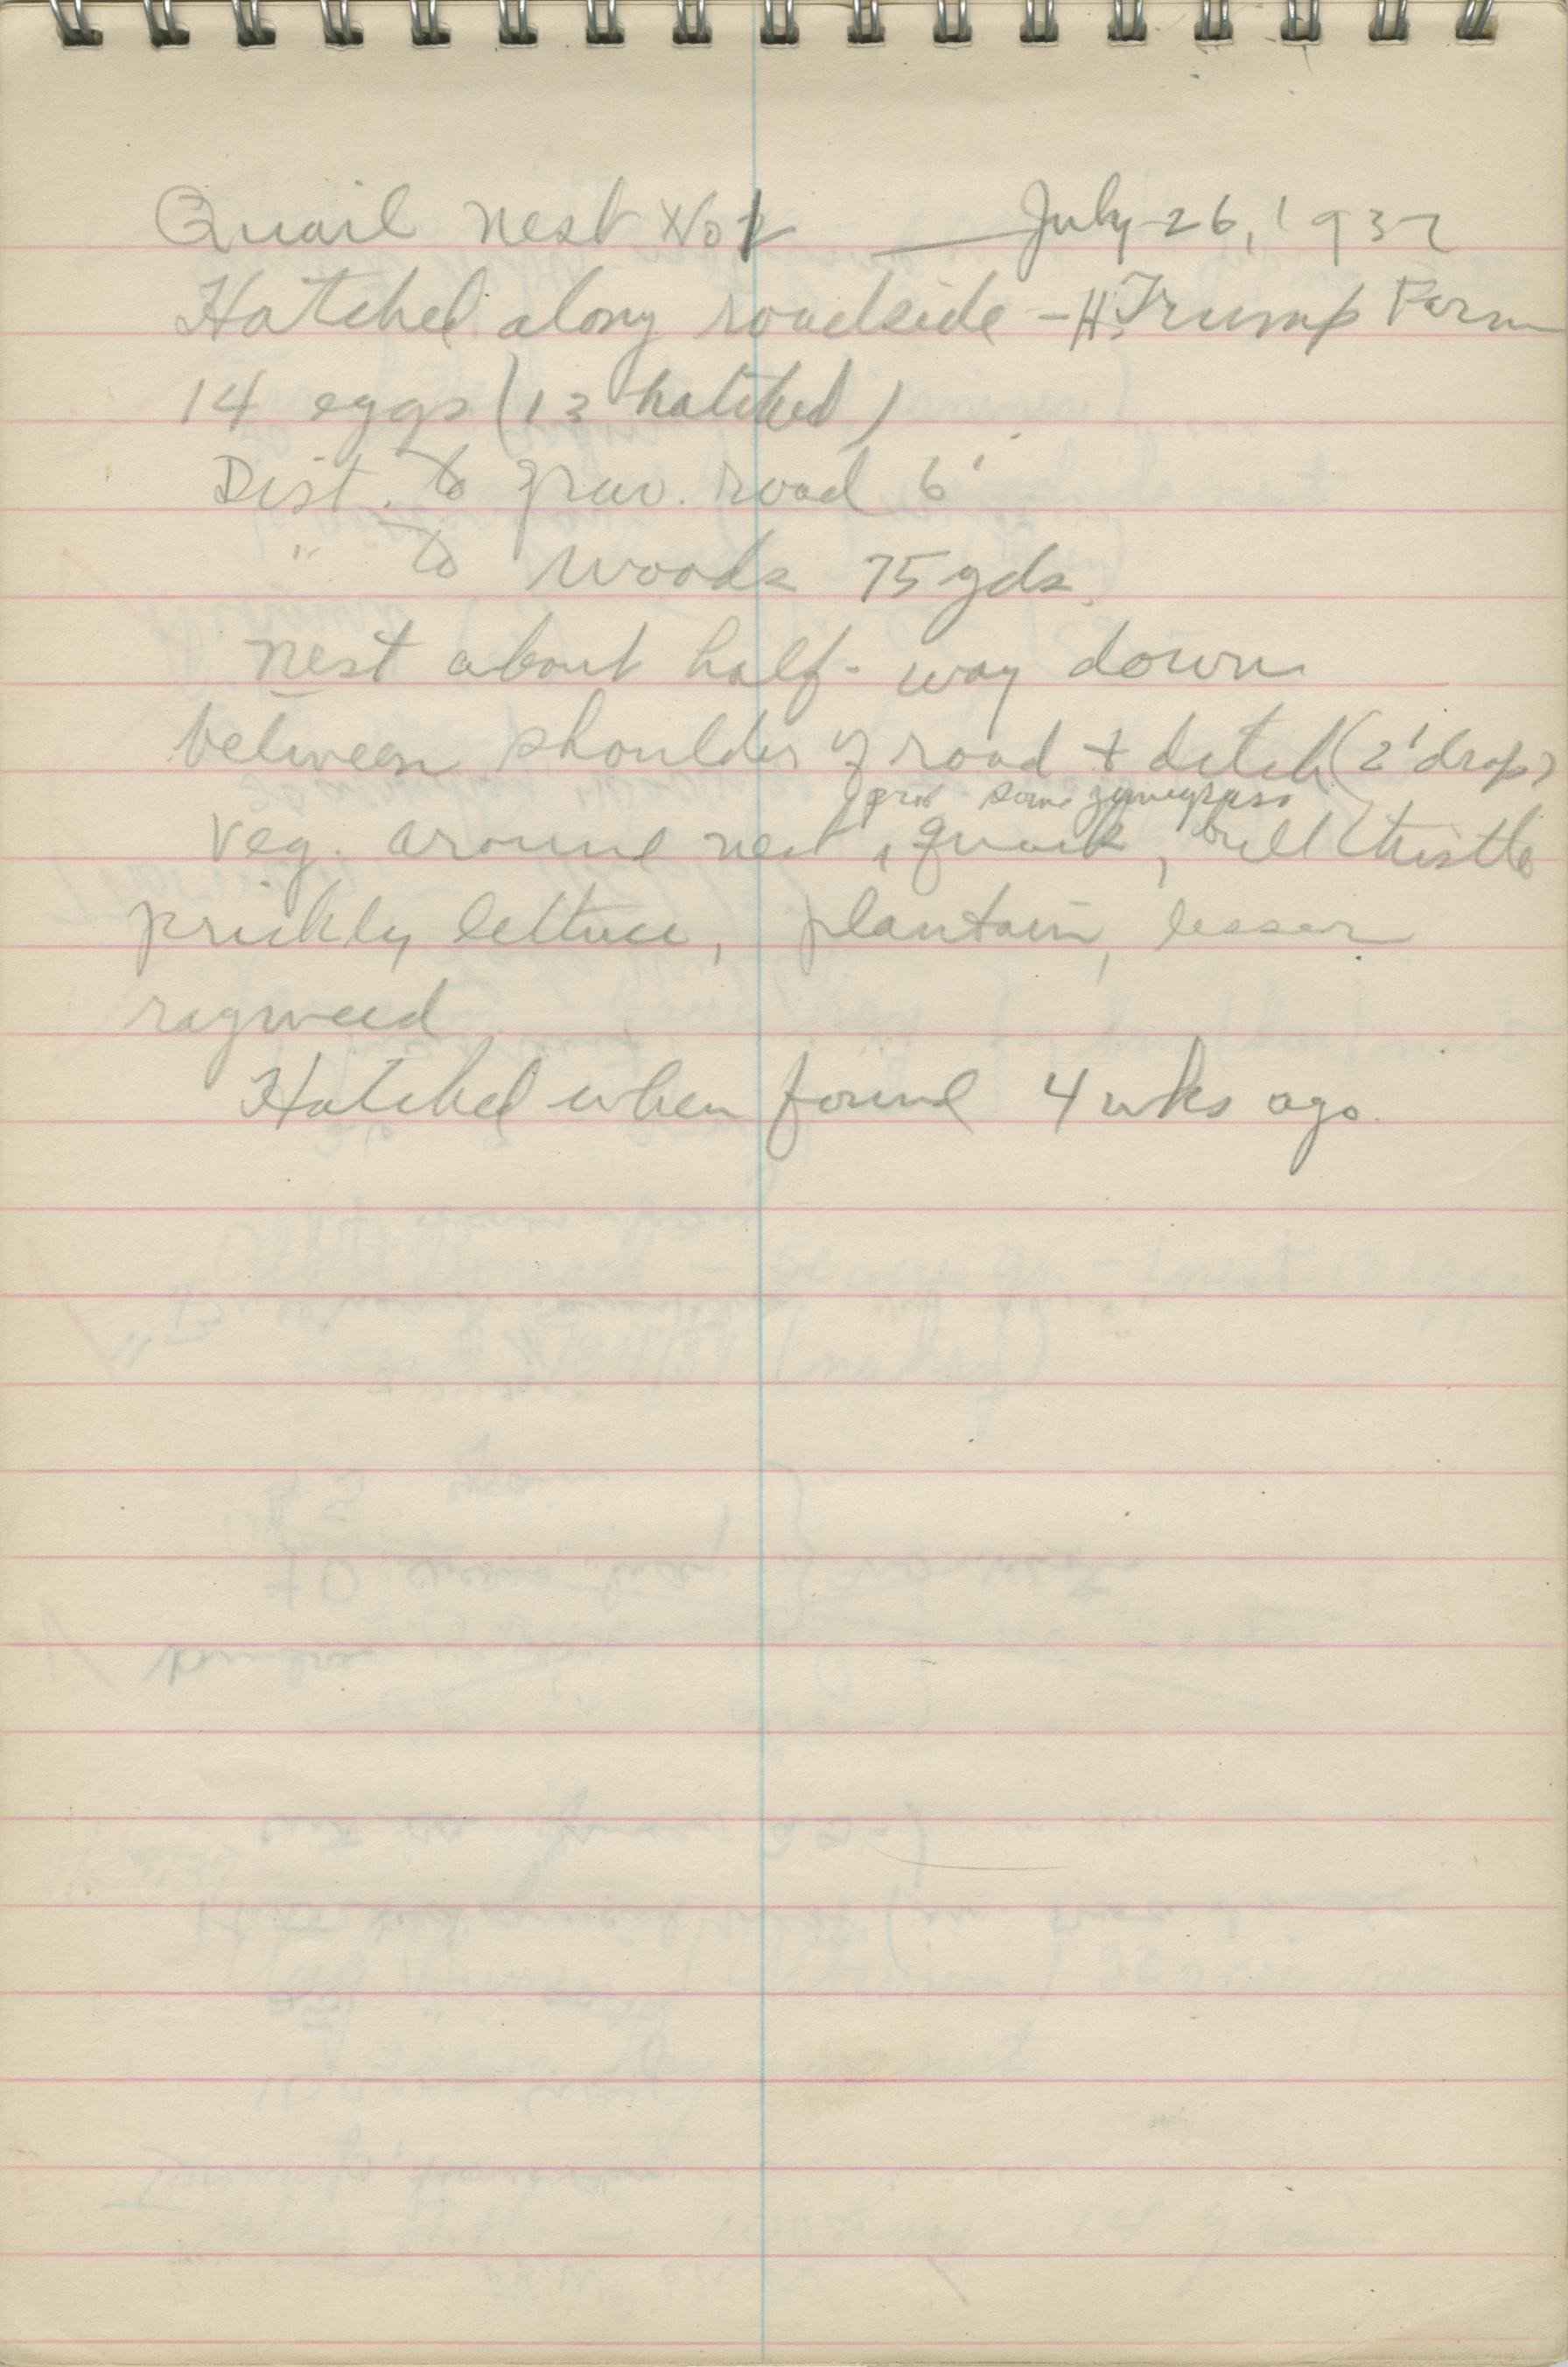 Quail nest No 1 — July 26, 1937
Hatched along roadside - H. Trump Farm
14 eggs (13 hatched)
Dist. to grav. road 6'
" to woods 75 yds.
Nest about half-way down
between shoulder of road + ditch (2' drop)
prob some Junegrass
Veg. around nest, quack, bull thistle
prickly lettuce, plantain, lesser
ragweed
Hatched when found 4 wks ago.